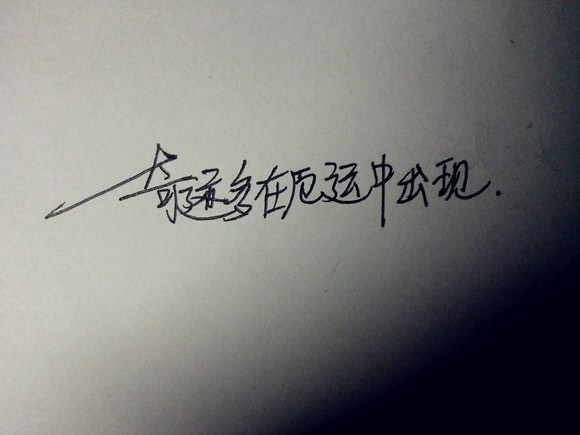 奇迹多在厄运中出现.